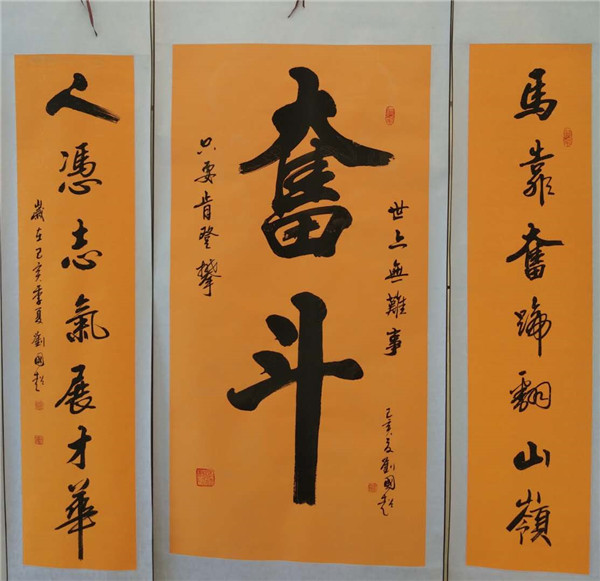 馬靠奮蹄翻山嶺
世上無難事
奮斗
只要肯登攀
己亥夏劉國
人憑志氣展才華
歲在己亥季夏劉國